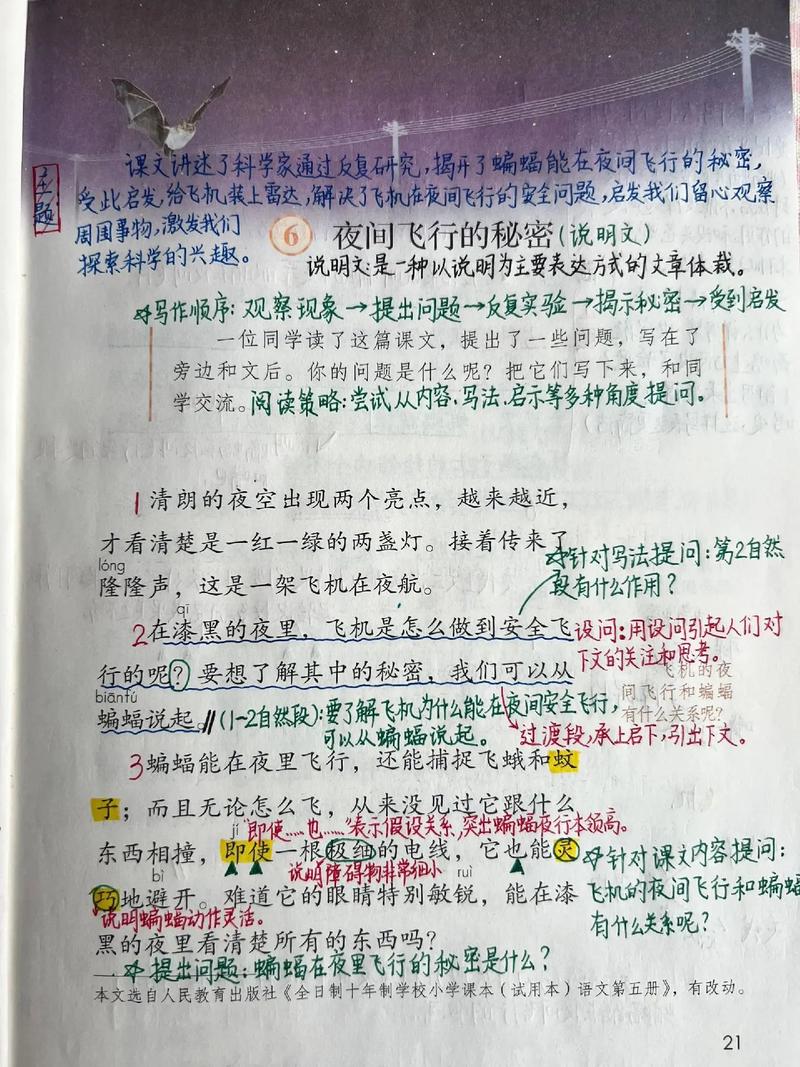 课文讲述了科学家通过反复研究,揭开了蝙蝠能在夜间飞行的秘密,
主题
受此启发,给飞机装上雷达,解决了飞机在夜间飞行的安全问题,启发我们留心观察
周围事物,激发我们
探索科学的兴趣。
6 夜间飞行的秘密(说明文)
说明文:是一种以说明为主要表达方式的文章体裁。
写作顺序:观察现象→提出问题→反复实验→揭示秘密→受到启发
一位同学读了这篇课文,提出了一些问题,写在了
旁边和文后。你的问题是什么呢?把它们写下来,和同
学交流。阅读策略:尝试从内容、写法、启示等多种角度提问。
1清朗的夜空出现两个亮点,越来越近,
才看清楚是一红一绿的两盏灯。接着传来了
针对写法提问:第2自然
段有什么作用?
lóng
隆隆声,这是一架飞机在夜航。
qī
2在漆黑的夜里,飞机是怎么做到安全飞
设问:用设问引起人们对
下文的关注和思考。
行的呢?要想了解其中的秘密,我们可以从
飞机的夜
间飞行和蝙蝠
有什么关系呢?
biānfú
蝙蝠说起。‖(1~2自然段):要了解飞机为什么能在夜间安全飞行,
可以从蝙蝠说起。
过渡段,承上启下,引出下文。
3蝙蝠能在夜里飞行,还能捕捉飞蛾和蚊
子;而且无论怎么飞,从来没见过它跟什么
jí
"即使……也……"表示假设关系,突出蝙蝠夜行本领高。
东西相撞,即使一根极细的电线,它也能灵
针对课文内容提问:
飞机的夜间飞行和蝙蝠
有什么关系呢?
说明障碍物非常细小
bì
ruì
巧地避开。难道它的眼睛特别敏锐,能在漆
说明蝙蝠动作灵活。
黑的夜里看清楚所有的东西吗?
提出问题:蝙蝠在夜里飞行的秘密是什么?
本文选自人民教育出版社《全日制十年制学校小学课本(试用本)语文第五册》,有改动。
21